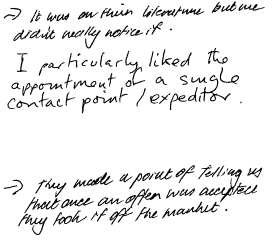 → It was on their literature but we
didn't really notice it.
I particularly liked the
appointment of a single
contact point / expeditor.
→ They made a point of telling us
that once an offer was accepted
they took it off the market.